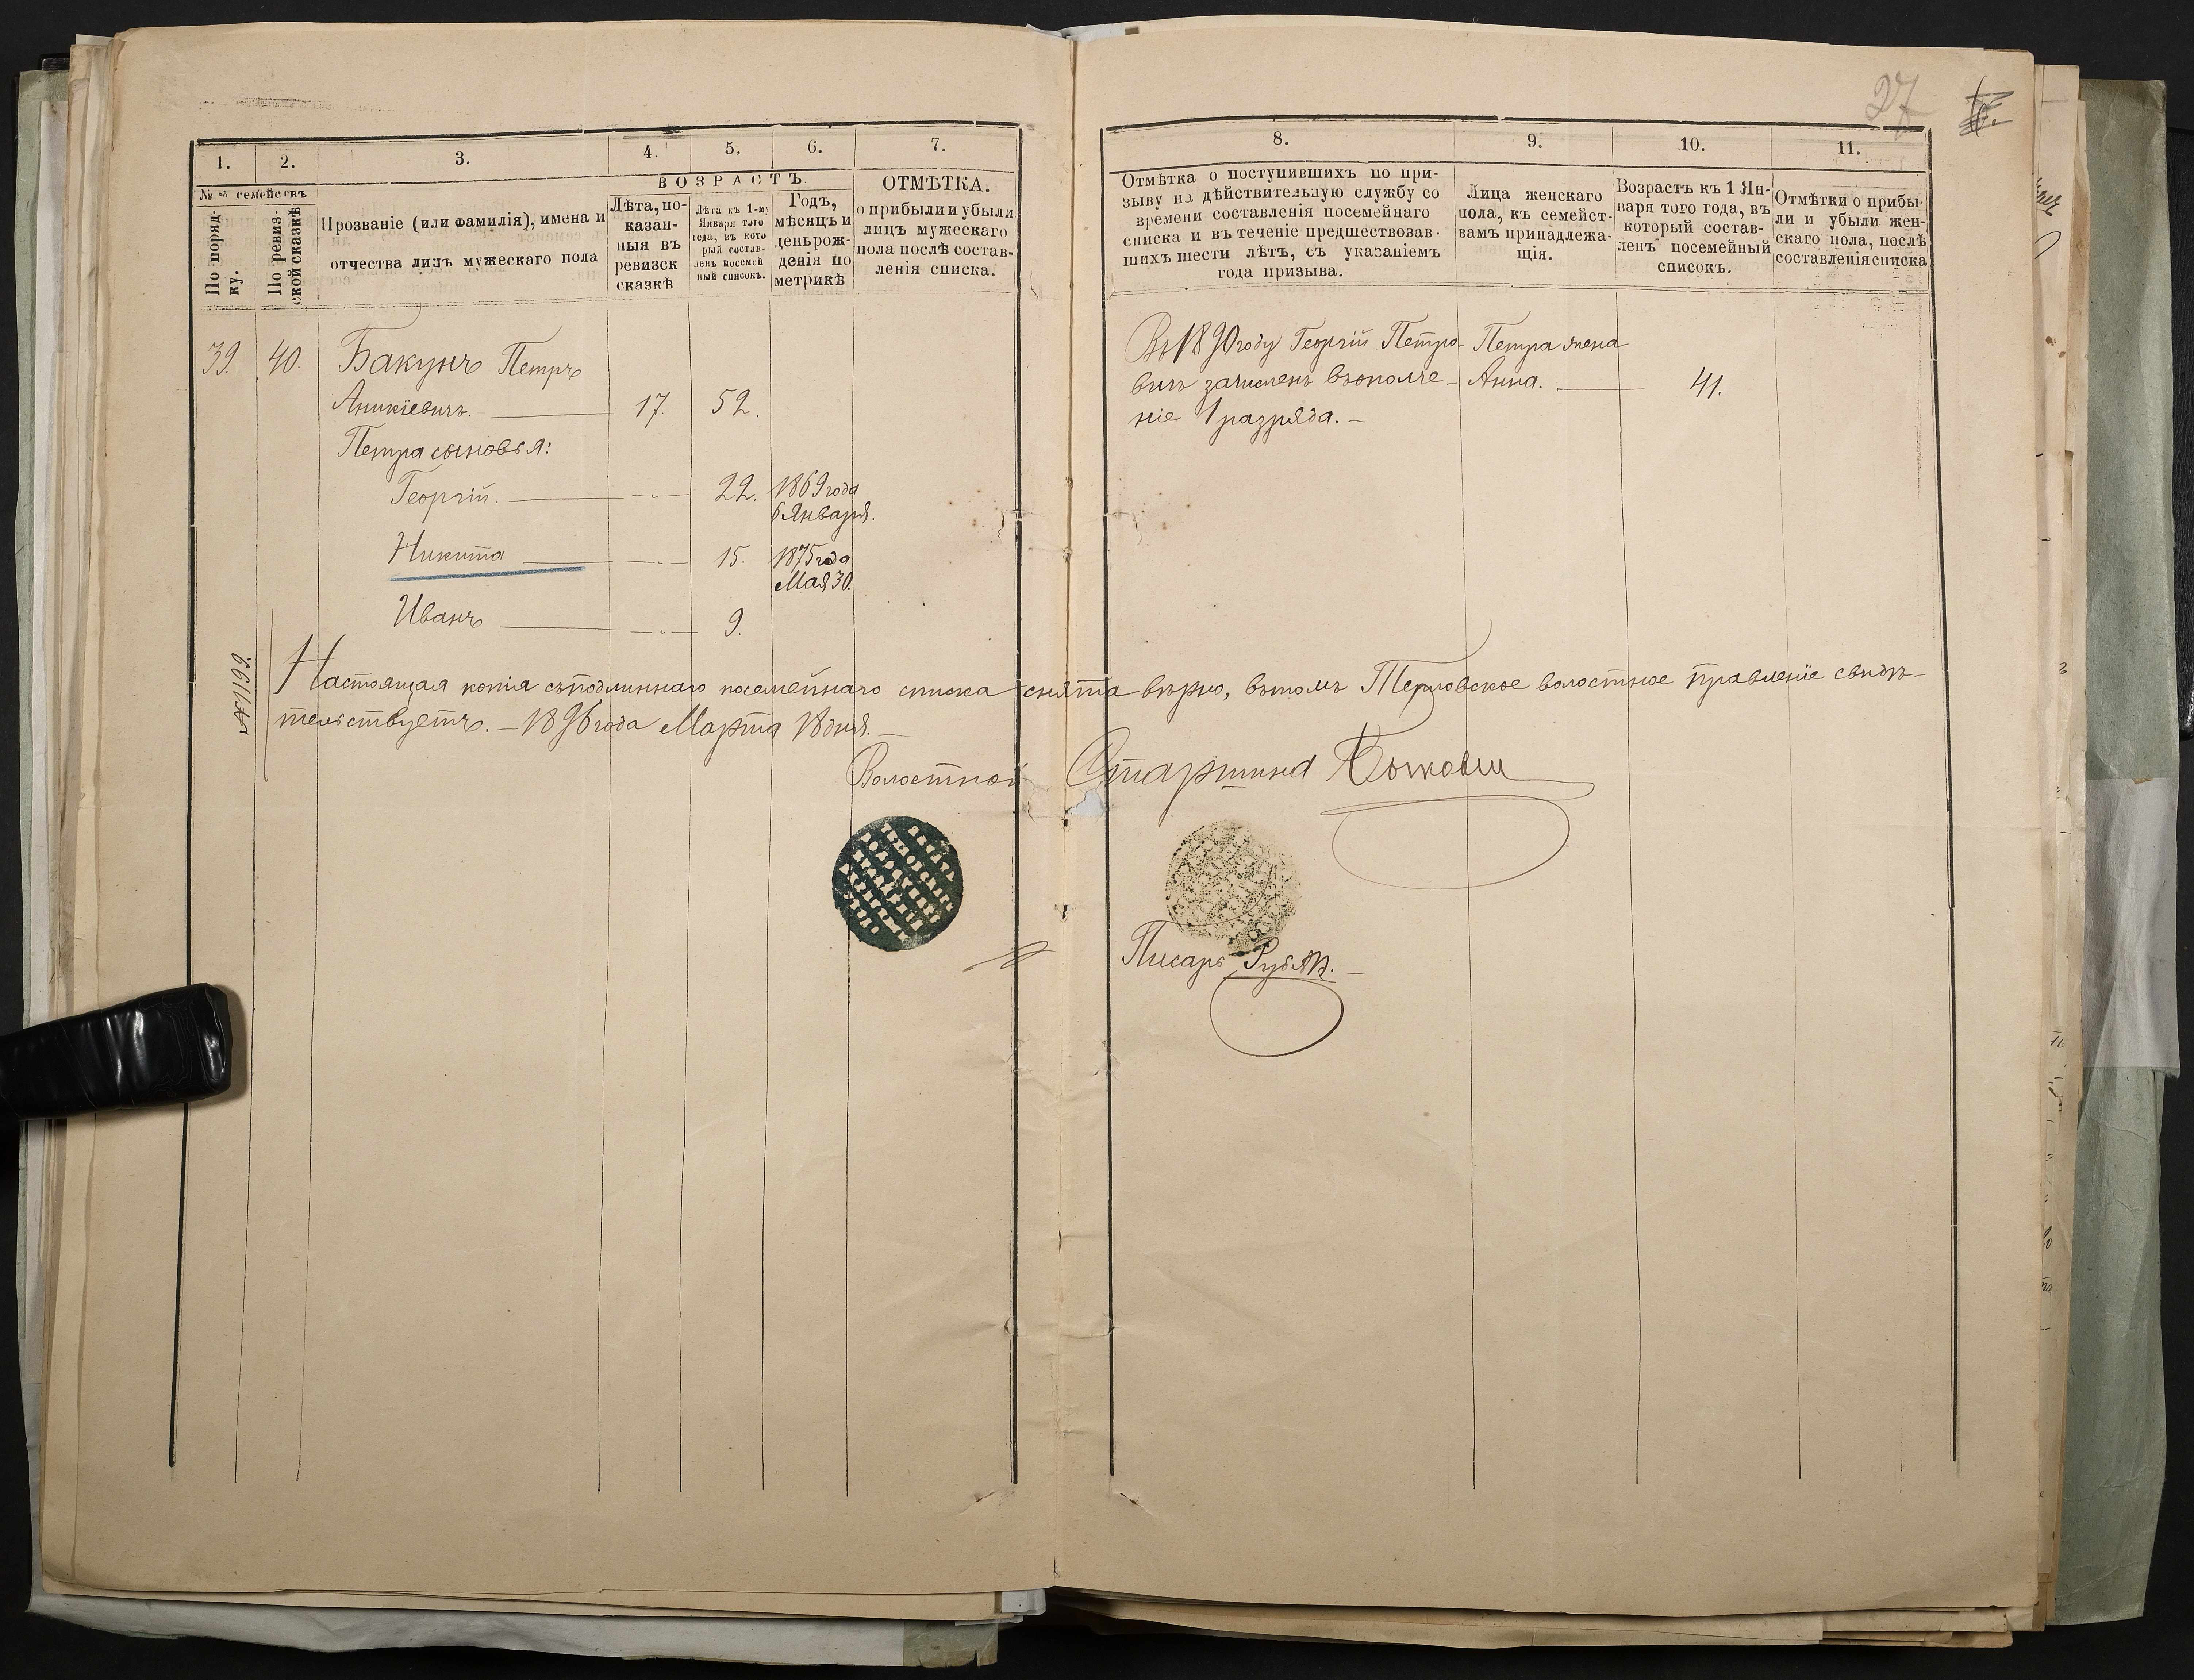 27
1.
2.
3.
4.
5.
6.
7.
№№ семействъ
По поряд-
ку.
По ревиз-
ской сказкѣ
Прозваніе (или фамилія), имена и
отчества лицъ мужескаго пола
ВОЗРАСТЪ
Лѣта, по-
казан-
ныя въ
ревизск
сказкѣ
Лѣта къ 1-му
Января того
года, въ кото
рый состав-
ленъ посемей
ный списокъ.
Годъ,
мѣсяцъ и
день рож-
денія по
метрикѣ
ОТМѢТКА.
о прибыли и убыли
лицъ мужескаго
пола послѣ состав-
ленія списка.
39.
40.
Бакунъ Петръ
Аникіевичъ. 17. 52.
Петра сыновья:
Георгій. 22. 1869 года
6 Января.
Никита 15. 1875 года
Мая 30.
Иванъ 9.
8.
9.
10.
11.
Отмѣтка о поступившихъ по при-
зыву на дѣйствительную службу со
времени составленія посемейнаго
списка и въ теченіе предшествовав-
шихъ шести лѣтъ, съ указаніемъ
года призыва.
Лица женскаго
пола, къ семейст-
вамъ принадлежа-
щія.
Возрастъ къ 1 Ян-
варя того года, въ
который состав-
ленъ посемейный
списокъ.
Отмѣтки о прибы-
ли и убыли жен-
скаго пола, послѣ
составленія списка
Въ 1890 году Георгій Петро-
вичъ зачисленъ въ ополче-
ніе 1 разряда. —
Петра жена
Анна. 41.
№1199.
Настоящая копія съ подлиннаго посемейнаго списка снята вѣрно, въ томъ Терловское волостное правленіе свидѣ-
тельствуетъ. — 1896 года Марта 18 дня. —
Волостной Старшина
Писарь